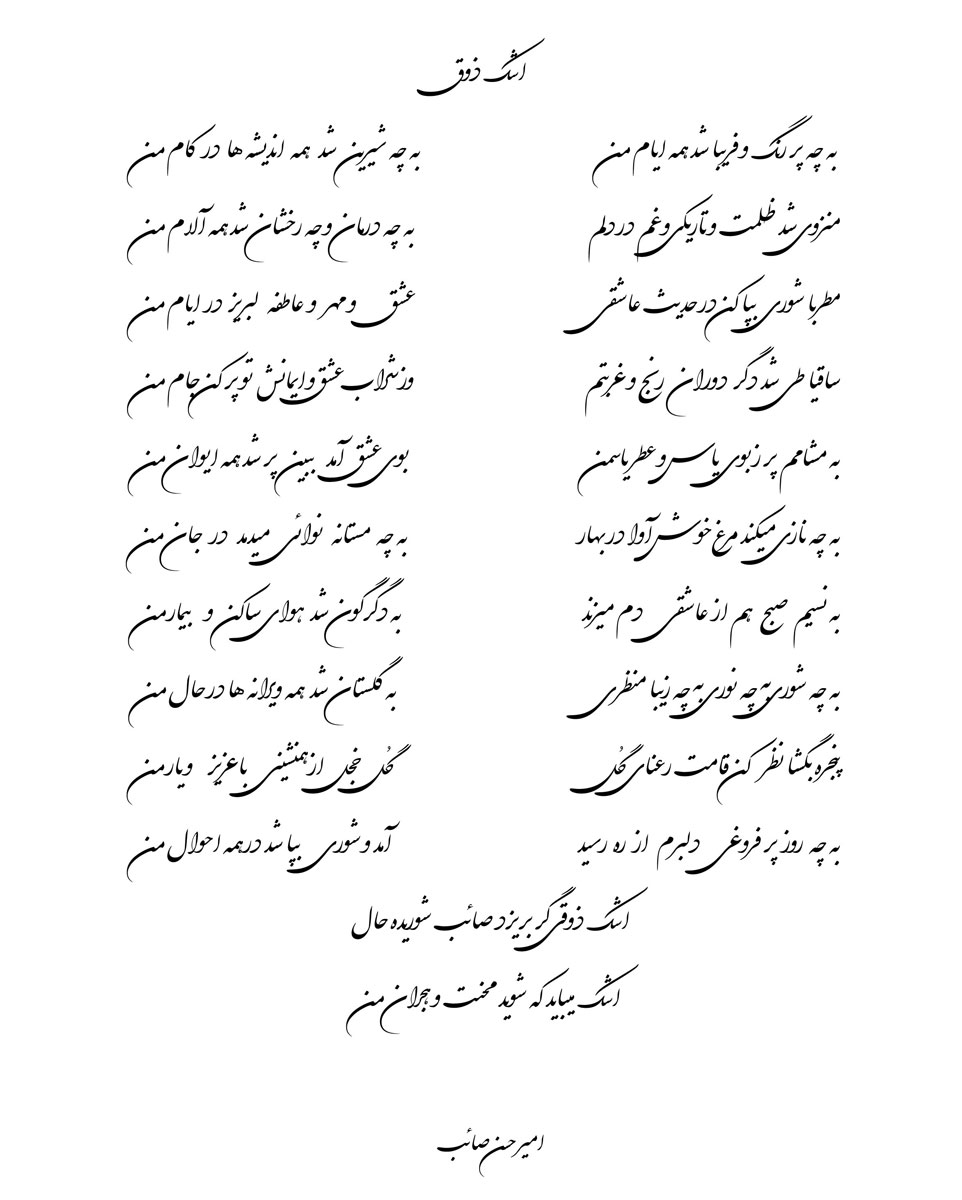 اشک ذوق
به چه پر رنگ و فریبا شد همه ایام من به چه شیرین شد همه اندیشه ها در کام من
منزوی شد ظلمت و تاریکی و غم در دلم به چه درمان و چه رخشان شد همه آلام من
مطربا شوری بپا کن در حدیث عاشقی عشق و مهر و عاطفه لبریز در ایام من
ساقیا طی شد دگر دوران رنج و غربتم وز شراب عشق و ایمانش تو پر کن جام من
به مشامم پر ز بوی یاس و عطر یاسمن بوی عشق آمد ببین پر شد همه ایوان من
به چه نازی میکند مرغ خوش آوا در بهار به چه مستانه نوائی میدمد در جان من
به نسیم صبح هم از عاشقی دم میزند به دگرگون شد هوای ساکن و بیمار من
به چه شوری به چه نوری به چه زیبا منظری به گلستان شد همه ویرانه ها در حال من
پنجره بگشا نظر کن قامت رعنای گُل گُل خجل از همنشینی با عزیز و یار من
به چه روز پر فروغی دلبرم از ره رسید آمد و شوری بپا شد در همه احوال من
اشک ذوقی گر بریزد صائب شوریده حال
اشک میباید که شوید محنت و هجران من
امیرحسن صائب